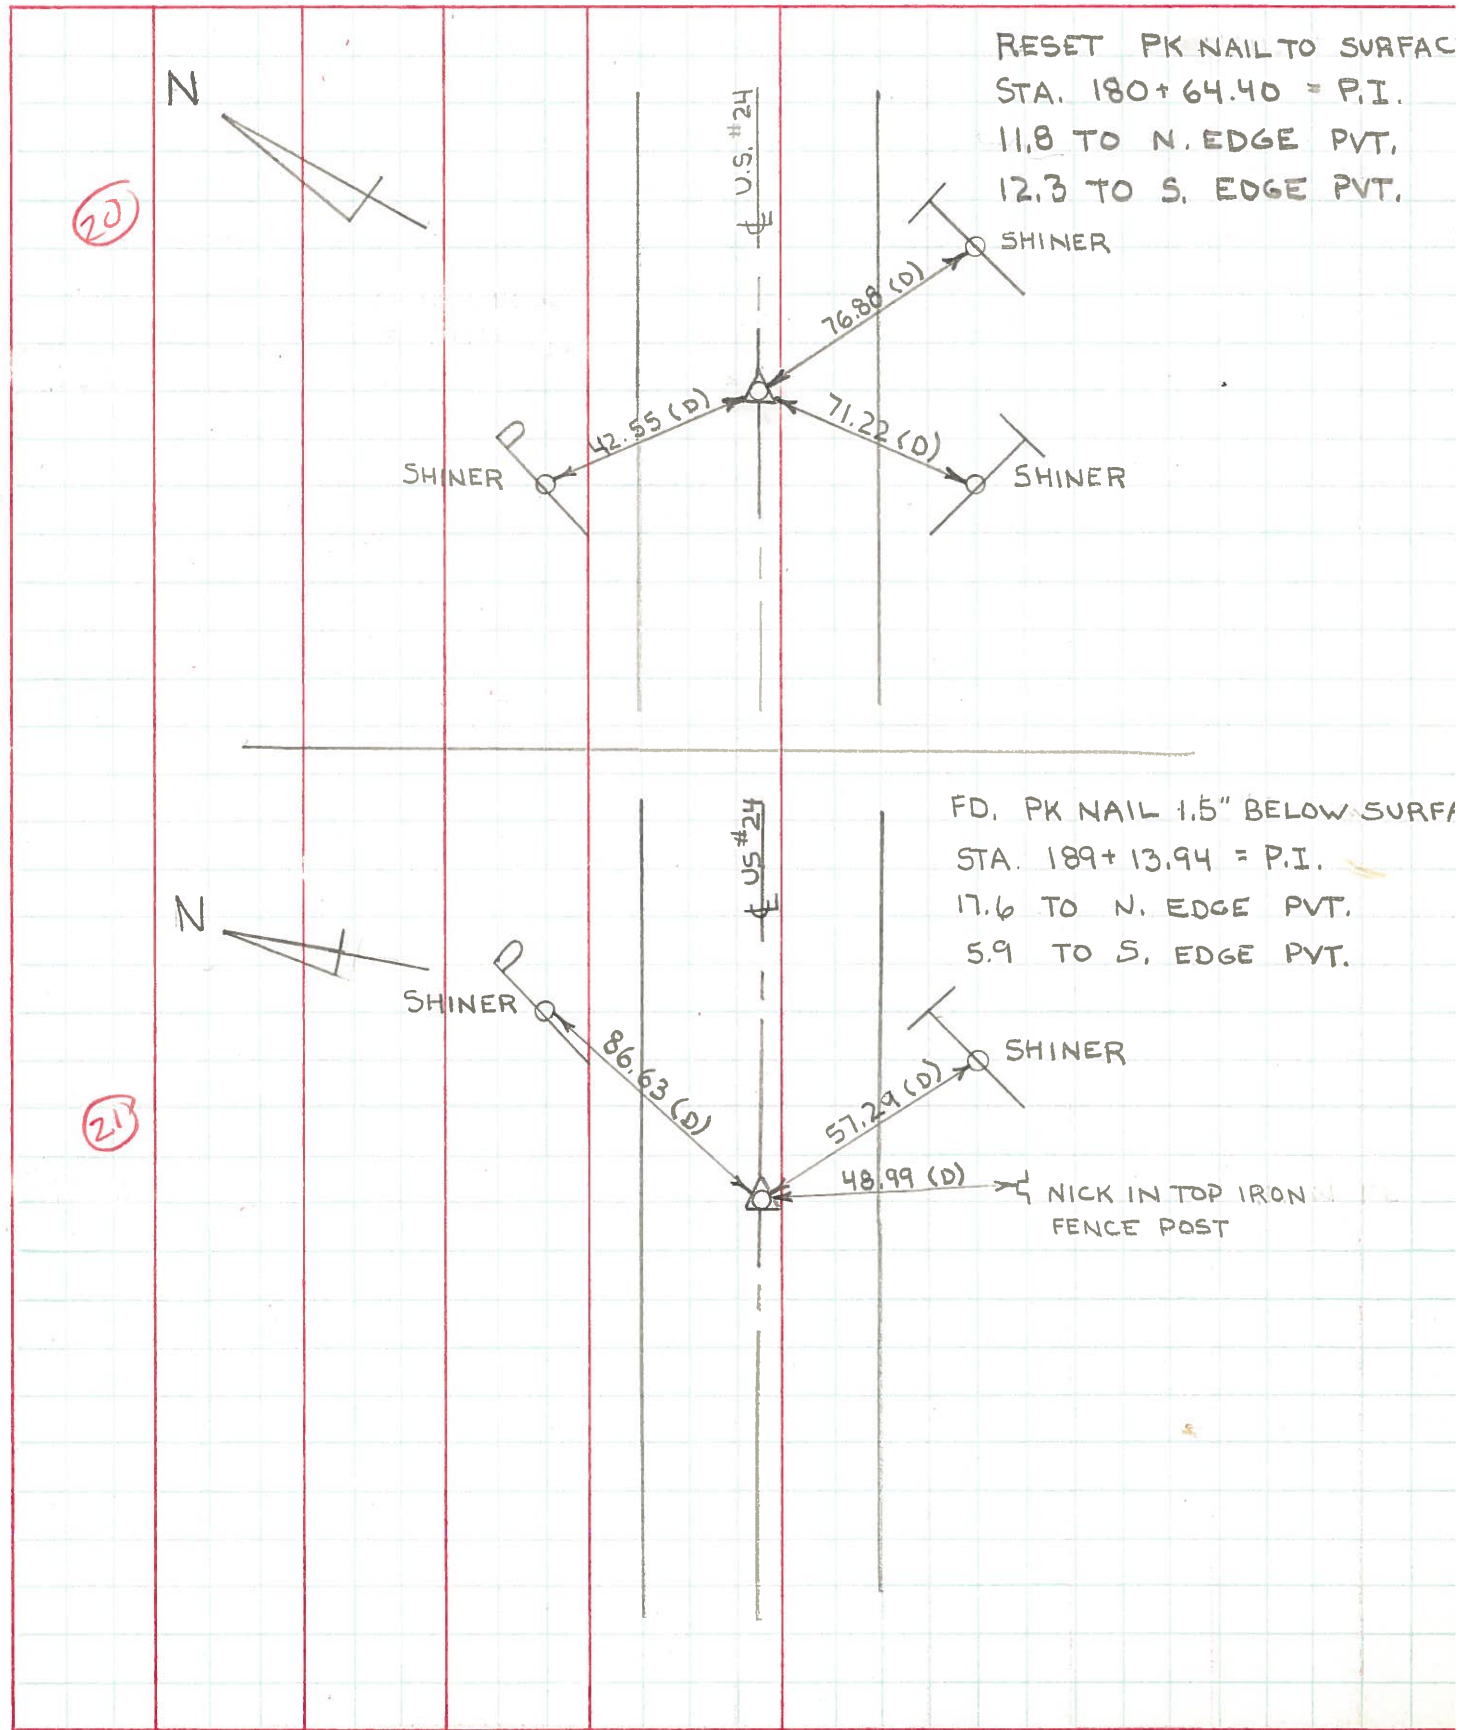 RESET PK NAIL TO SURFAC
STA. 180+64.40 = P.I.
11.8 TO N. EDGE PVT.
12.3 TO S. EDGE PVT.
N
20
℄ U.S. #24
SHINER
76.88 (D)
42.55 (D)
71.22 (D)
SHINER
SHINER
FD. PK NAIL 1.5" BELOW SURFA
STA. 189+13.94 = P.I.
17.6 TO N. EDGE PVT.
5.9 TO S. EDGE PVT.
℄ US #24
N
SHINER
SHINER
86.63 (D)
57.29 (D)
21
48.99 (D)
NICK IN TOP IRON
FENCE POST